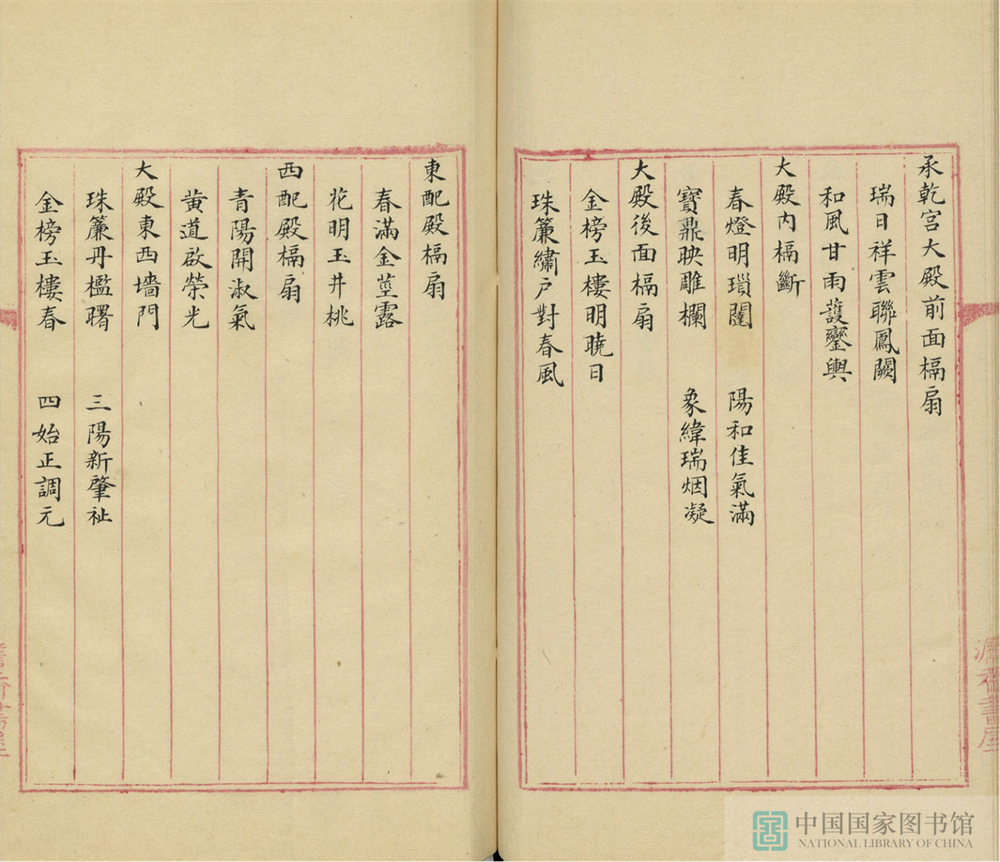 承乾宮大殿前面槅扇
瑞日祥雲聯鳳闕
和風甘雨護鑾輿
大殿內槅斷
春燈明瑣闥　陽和佳氣滿
寶鼎映雕欄　象緯瑞烟凝
大殿後面槅扇
金榜玉樓明曉日
珠簾繡戶對春風
東配殿槅扇
春滿金莖露
花明玉井桃
西配殿槅扇
青陽開淑氣
黃道啟榮光
大殿東西墻門
珠簾丹檻曙　三陽新肇祉
金榜玉樓春　四始正調元
書屋
中国国家图书馆
NATIONAL LIBRARY OF CHINA